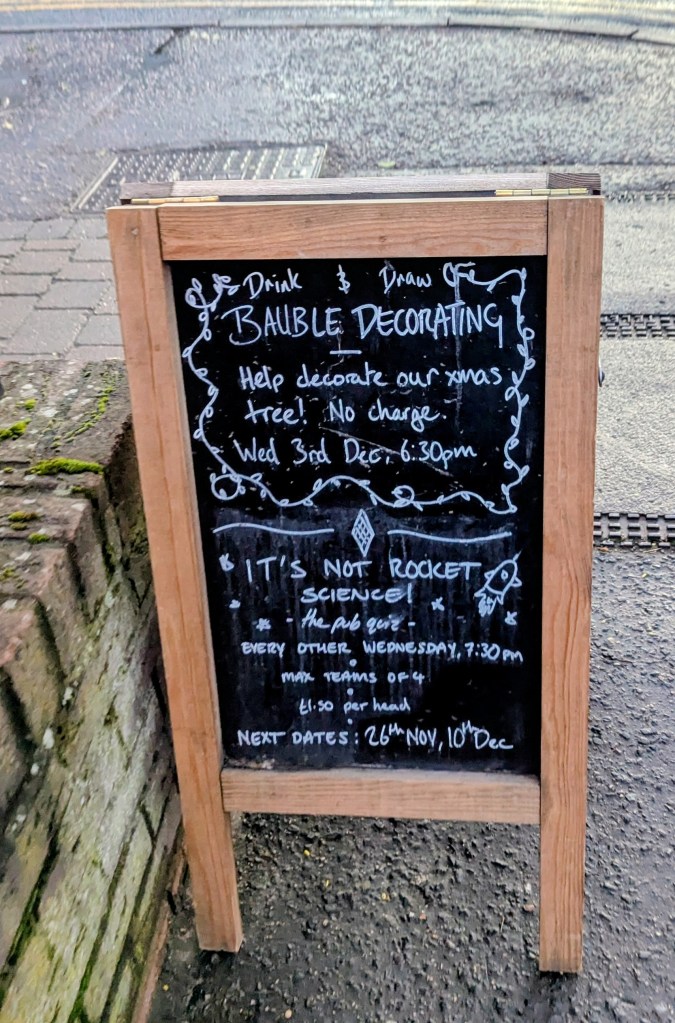 Drink & Draw
BAUBLE DECORATING
Help decorate our xmas
tree! No charge.
Wed 3rd Dec, 6:30pm
IT'S NOT ROCKET
SCIENCE!
- the pub quiz -
EVERY OTHER WEDNESDAY, 7:30PM
MAX TEAMS OF 4
£1.50 per head
NEXT DATES: 26th NOV, 10th Dec